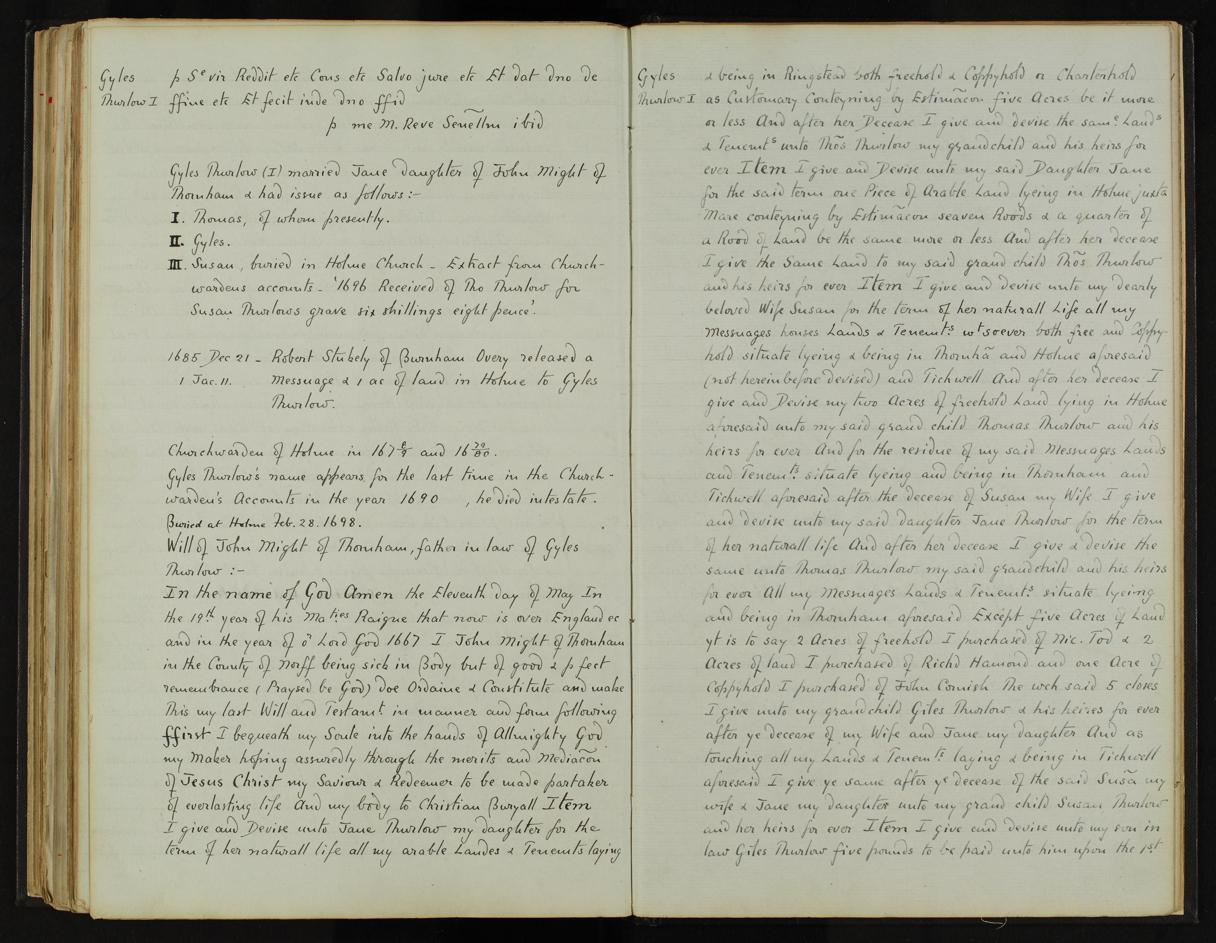 Gyles
Thurlow I
p Se vir Reddit etc Cons etc Salvo jure etc Et dat dno de
ffine etc Et fecit inde dno ffid
p me M. Reve Senellm ibid
Gyles Thurlow (I) married Jane daughter of John Might of
Thornham & had issue as follows:-
I. Thomas, of whom presently.
II. Gyles.
III. Susan, buried in Holme Church - Extract from Church-
wardens accounts - '1696 Received of Tho Thurlow for
Susan Thurlows grave six shillings eight pence'.
1685 Dec 21 - Robert Stubely of Burnham Overy released a
1 Jac. 11. Messuage & 1 ac of land in Holme to Gyles
Thurlow.
Churchwarden of Holme in 167 8/9 and 16 79/80.
Gyles Thurlow's name appears for the last time in the Church-
warden's Accounts in the year 1690 , he died intestate.
Buried at Holme Feb. 28. 1698.
Will of John Might of Thornham, father in law of Gyles
Thurlow :-
In the name of God Amen the Eleventh day of May In
the 19th year of his Maties Raigne that now is over England ec
and in the year of õ Lord God 1667 I John Might of Thornham
in the County of Norff being sick in Body but of good & pfect
remembrance (Praysed be God) doe Ordaine & Constitute and make
This my last Will and Testamt in manner and form following
ffirst I bequeath my Soule into the hands of Allmighty God
my Maker hoping assuredly through the merits and Mediacõn
of Jesus Christ my Saviour & Redeemer to be made partaker
of everlasting life And my body to Christian Buryall Item
I give and Devise unto Jane Thurlow my daughter for the
term of her naturall life all my arable Landes & Tenemts laying
Gyles
Thurlow I
& being in Ringstead both freehold & Coppyhold or Charterhold
as Customary Conteyning by Estimãcon five Acres be it more
or less And after her Decease I give and devise the same Lands
& Tenemts unto Thõs Thurlow my grandchild and his heirs for
ever Item I give and Devise unto my said Daughter Jane
for the said term one Piece of Arable Land lyeing in Holme juxta
Mare conteyning by Estimãcon seaven Roods & a quarter of
a Rood of Land be the same more or less And after her decease
I give the Same Land to my said grand child Thõs Thurlow
and his heirs for ever Item I give and devise unto my dearly
beloved Wife Susan for the term of her naturall Life all my
Messuages houses Lands & Tenemts wtsoever both free and Coppy-
hold situate lyeing & being in Thornhã and Holme aforesaid
(not hereinbefore devised) and Tichwell And after her decease I
give and Devise my two Acres of freehold Land lying in Holme
aforesaid unto my said grand child Thomas Thurlow and his
heirs for ever And for the residue of my said Messuages Lands
and Tenemts situate lyeing and being in Thornham and
Tichwell aforesaid after the decease of Susan my Wife I give
and devise unto my said daughter Jane Thurlow for the term
of her naturall life And after her decease I give & devise the
same unto Thomas Thurlow my said grandchild and his heirs
for ever All my Messuages Lands & Tenemts situate lyeing
and being in Thornham aforesaid Except five Acres of Land
yt is to say 2 Acres of freehold I purchased of Nic. Tod & 2
Acres of land I purchased of Richd Hamond and one Acre of
Coppyhold I purchased of John Cornish The wch said 5 closes
I give unto my grandchild Giles Thurlow & his heires for ever
after ye decease of my Wife and Jane my daughter And as
touching all my Lands & Tenemts laying & being in Tichwell
aforesaid I give ye same after ye decease of the said Susã my
wife & Jane my daughter unto my grand child Susan Thurlow
and her heirs for ever Item I give and devise unto my son in
law Giles Thurlow five pounds to be paid unto him upon the 1st